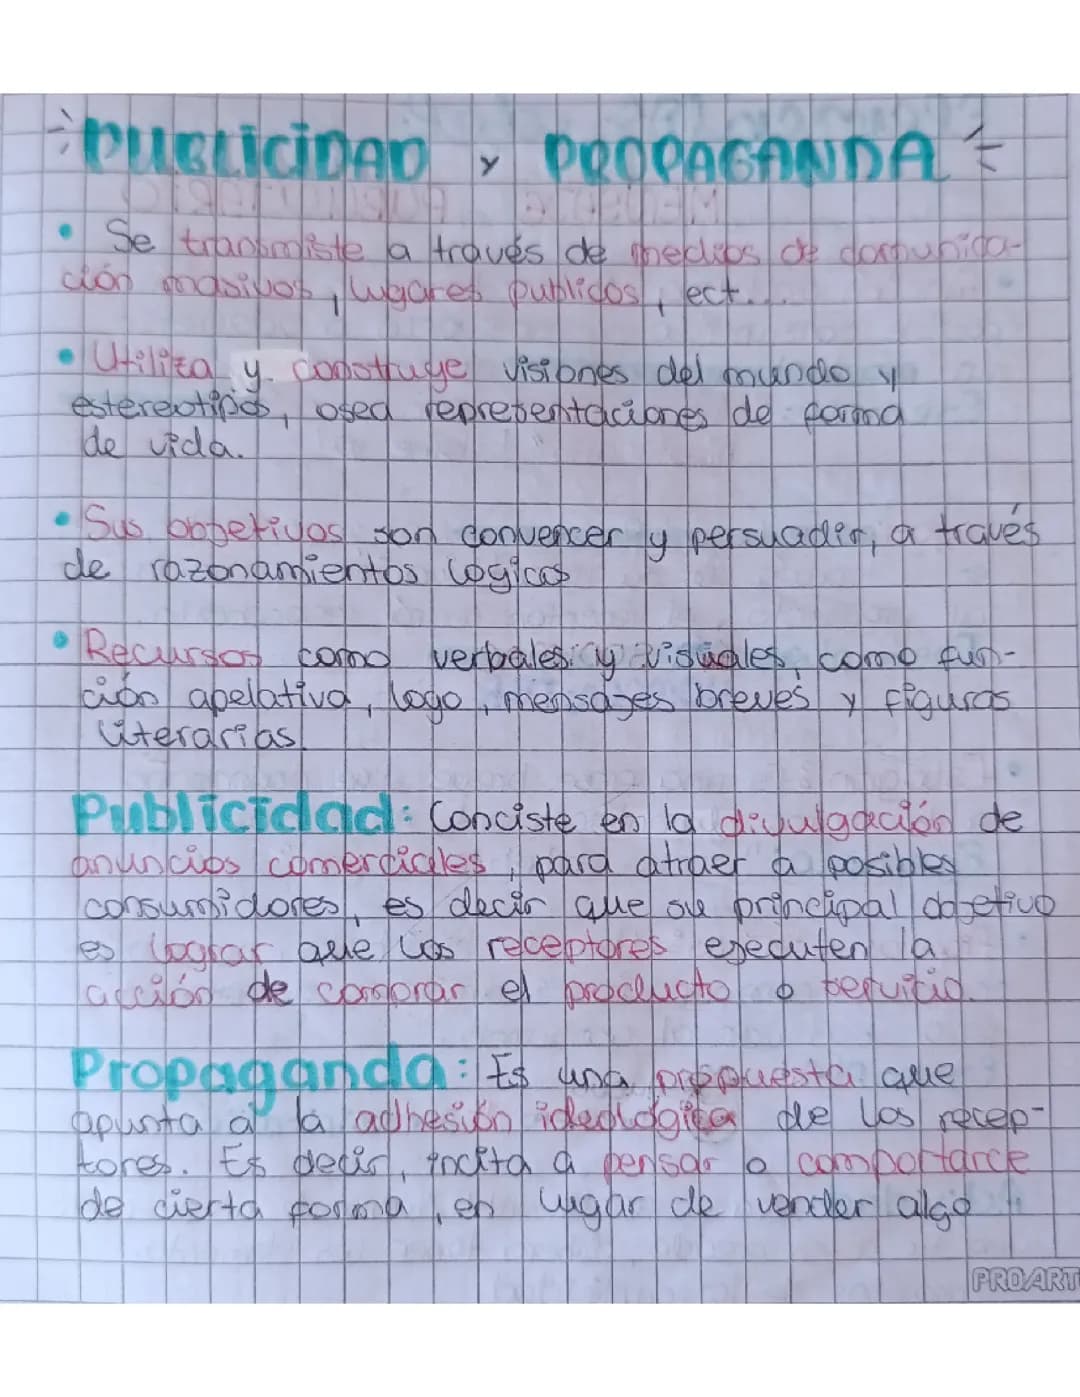 PUBLICIDAD Y PROPAGANDA
• Se transmiste a través de medios de comunica-
ción masivos, lugares publicos, ect...
• Utiliza y construye visiones del mundo y
estereotipos, osea representaciones de forma
de vida.
• Sus objetivos son convencer y persuadir, a través
de razonamientos lógicos
• Recursos como verbales y visuales, como fun-
ción apelativa, logo, mensajes breves y figuras
literarias.
Publicidad: Conciste en la divulgación de
anuncios comerciales, para atraer a posibles
consumidores, es decir que su principal objetivo
es lograr que los receptores ejecuten la
acción de comprar el producto o servicio.
Propaganda: Es una propuesta que
apunta a la adhesión ideológica de los recep-
tores. Es decir, incita a pensar o comportarce
de cierta forma, en lugar de vender algo
PROART